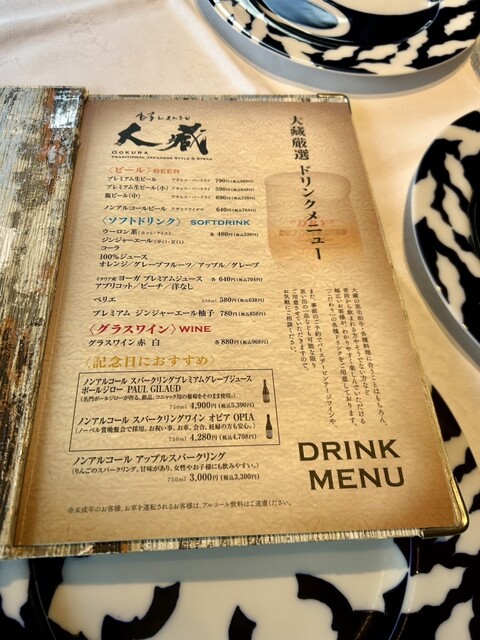 大蔵
OOKURA
TRADITIONAL JAPANESE STYLE & STEAK
大蔵厳選 ドリンクメニュー
〈ビール〉BEER
プレミアム生ビール 790円
プレミアム生ビール(小) 590円
瓶ビール(中) 690円
ノンアルコールビール 640円(税込704円)
〈ソフトドリンク〉 SOFTDRINK
ウーロン茶(ホット/アイス) 各 480円(税込528円)
ジンジャーエール(辛口・甘口)
コーラ
100%ジュース
オレンジ/グレープフルーツ/アップル/グレープ
イタリア産 ヨーガ プレミアムジュース 各 640円(税込704円)
アプリコット/ピーチ/洋なし
ペリエ 580円(税込638円)
プレミアム ジンジャーエール柚子 780円(税込858円)
〈グラスワイン〉WINE
グラスワイン 赤 白 各 880円(税込968円)
〈記念日におすすめ〉
ノンアルコール スパークリングプレミアムグレープジュース
ポールジロー PAUL GILAUD
(名門ポールジローが作る、絶品、コニャック用の葡萄をそのまま使用。)
750ml 4,900円(税込5,390円)
ノンアルコール スパークリングワイン オピア OPIA
(ノーベル賞晩餐会で採用。お祝い事、お車、会合、妊婦の方も安心。)
750ml 4,280円(税込4,708円)
ノンアルコール アップルスパークリング
(りんごのスパークリング。甘味があり、女性やお子様にも飲みやすい。)
750ml 3,000円(税込3,300円)
※未成年のお客様、お車を運転されるお客様は、アルコール飲料はご遠慮ください。
DRINK
MENU